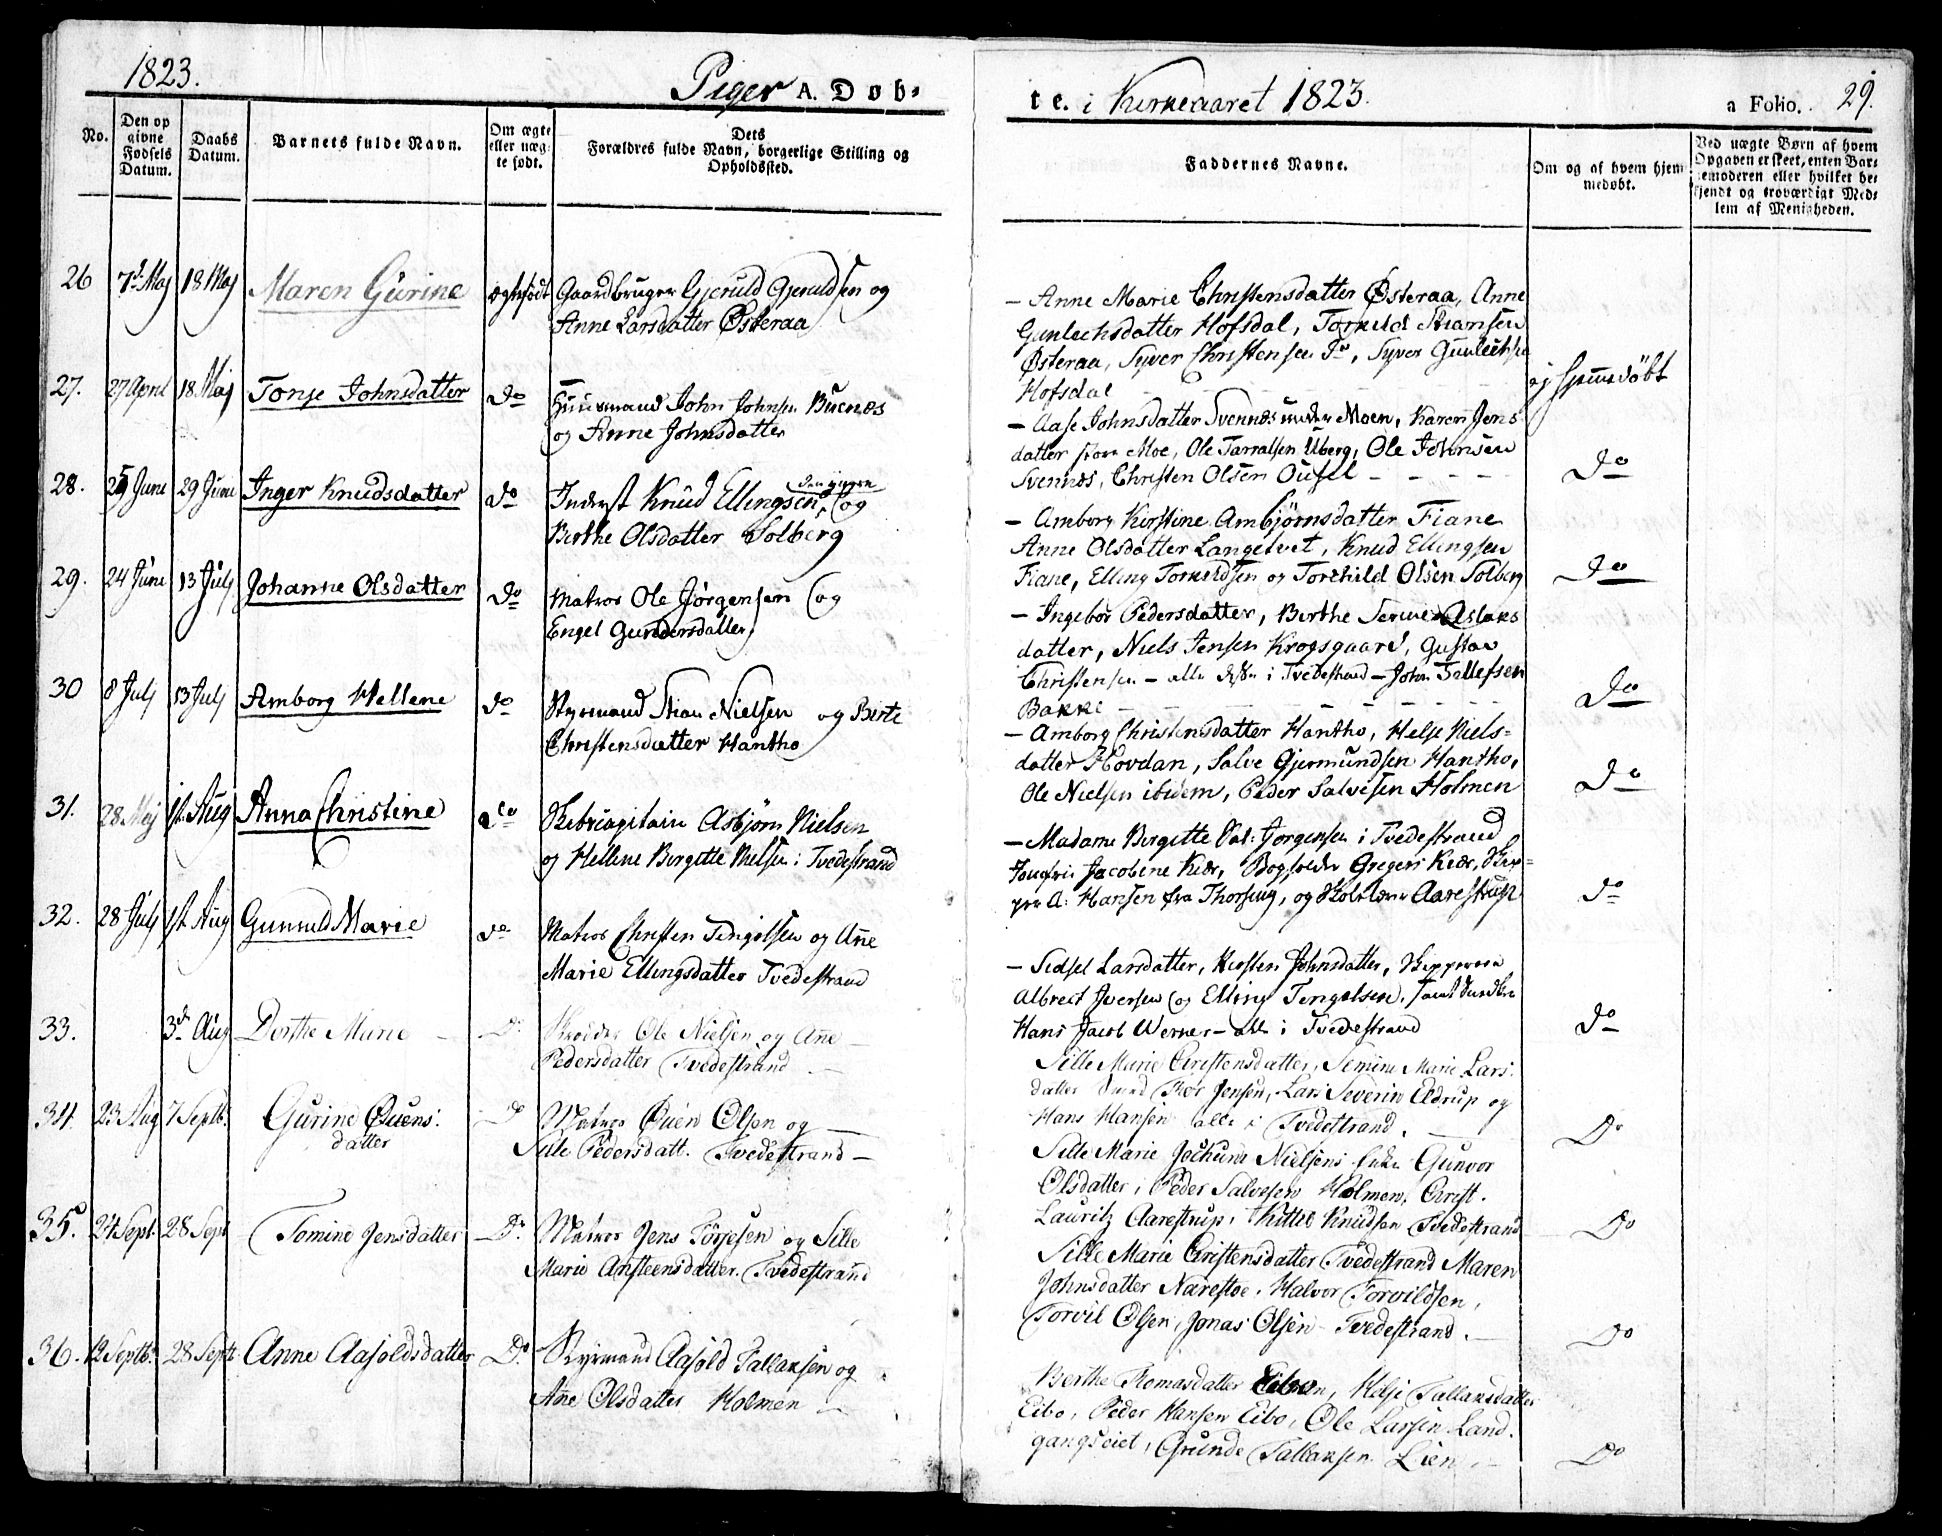 1823.
Piger A. Døb-
No.
Den op
givne
Fødsels
Datum.
Daabs
Datum.
Barnets fulde Navn.
Om ægte
eller uæg-
te født.
Dets
Forældres fulde Navn, borgerlige Stilling og
Opholdssted.
26 7d. Maj 18 Maj Maren Gurine ægtefødt Gaardbruger Gjeruld Gjeruldsen og
Anne Larsdatter Østeraa
27. 27 April 18. Maj Tonje Johnsdatter do Huusmand John Johnsen Buenæs
og Anne Johnsdatter
28. 25 Juni 29 Juni Inger Knudsdatter do Inderst Knud Ellingsen og
Berthe Olsdatter Solberg
29. 24 Juni 13 July Johanne Olsdatter do Matros Ole Jørgensen og
Engel Gundersdatter
30 8 July 13 July Amborg Hellene do Styrmand Stian Nielsen og Birte
Christensdatter Hantho
31. 28 Maj 1st. Aug Anna Christine do Asbjørn Nielsen
og Hellene Birgitte Nielsen i Tvedestrand
32. 28 July 1st. Aug Gunnild Marie do Matros Christen Tengelsen og Ane
Marie Ellingsdatter Tvedestrand
33. 3d. Aug Dorthe Marie Do Ole Nielsen og Ane
Pedersdatter Tvedestrand
34. 23 Aug 7 Septb. Gurine Øuens: Do Matros Øuen Olsen og
datter Sille Pedersdatt. Tvedestrand
35. 24 Sept. 28 Sept Tomine Jensdatter Do Matros Jens Törjesen og Sille
Marie Ansteensdatter. Tvedestrand
36. 12 Septb. 28 Sept Anne Aasoldsdatter Do Styrmand Aasold Tallaksen og
Ane Olsdatter Holmen
te. i Kirkeaaret 1823. a Folio. 29.
Faddernes Navne.
Om og af hvem hjem-
medøbt.
Ved uægte Børn af hvem
Opgaven er skeet, enten Bar-
nemoderen eller hvilket be-
kjendt og troværdigt Med-
lem af Menigheden.
- Anne Marie Christensdatter Østeraa, Anne
Gunlechsdatter Hofsdal, Torkild Stiansen
Østeraa, Syver Christensen Do, Syver Gunlechsen
Hofsdal
ej hjemmedøbt
- Aase Johnsdatter Svennæs under Moen, Karen Jens
datter Moe, Ole Tarralsen Uberg, Ole Johnsen
Svennæs, Christen Olsen Ousel
Do
- Amborg Kirstine Ambjørnsdatter Fiane
Anne Olsdatter Langetvet, Knud Ellingsen
Fiane, Elling Torkildsen og Torchild Olsen Solberg
Do
- Ingebor Pedersdatter, Berthe Aslaks
datter, Niels Jensen Krogsgaard, Gustav
Christensen - alle i Tvedestrand - John Tellefsen
Bakke
Do
- Amborg Christensdatter Hantho, Helje Niels-
datter Hovdan, Salve Gjermundsen Hantho,
Ole Nielsen ibidem, Peder Salvesen Holmen
Do
- Madame Birgitte Jørgensen i Tvedestrand
Jomfru Jacobine Kiær, Bogholder Gregers Kiær, Skip-
per A. Hansen fra Thorsing, og Skolelærer Aarestrup
do
- Sidsel Larsdatter, Kirsten Johnsdatter, Skipperen
Albrect Iversen og Elling Tengelsen, samt
Hans Jacob Werner - alle i Tvedestrand
do
Sille Marie Christensdatter, Semine Marie Lars:
datter Jensen, Lars Severin Eldrup og
Hans Hansen alle i Tvedestrand.
Do
Sille Marie Jochum Nielsens Enke Gunvor
Olsdatter, Peder Salvesen Holmen, Christ.
Lauritz Aarestrup, Kittel Knudsen Tvedestrand
Do
Sille Marie Christensdatter Tvedestrand Maren
Johnsdatter Narestoe. Halvor Torvildsen,
Torvil Olsen, Jonas Olsen Tvedestrand.
Do
Berthe Tomasdatter Eibo, Helje Tallaksdatter
Eibo, Peder Hansen Eibo, Ole Larsen Land.
gangseiet, Grunde Tallaksen Lien.
Do